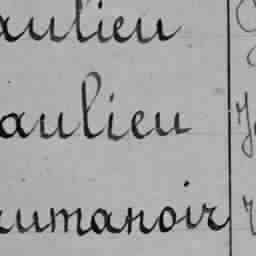 aulieu
aulieu
umanoir